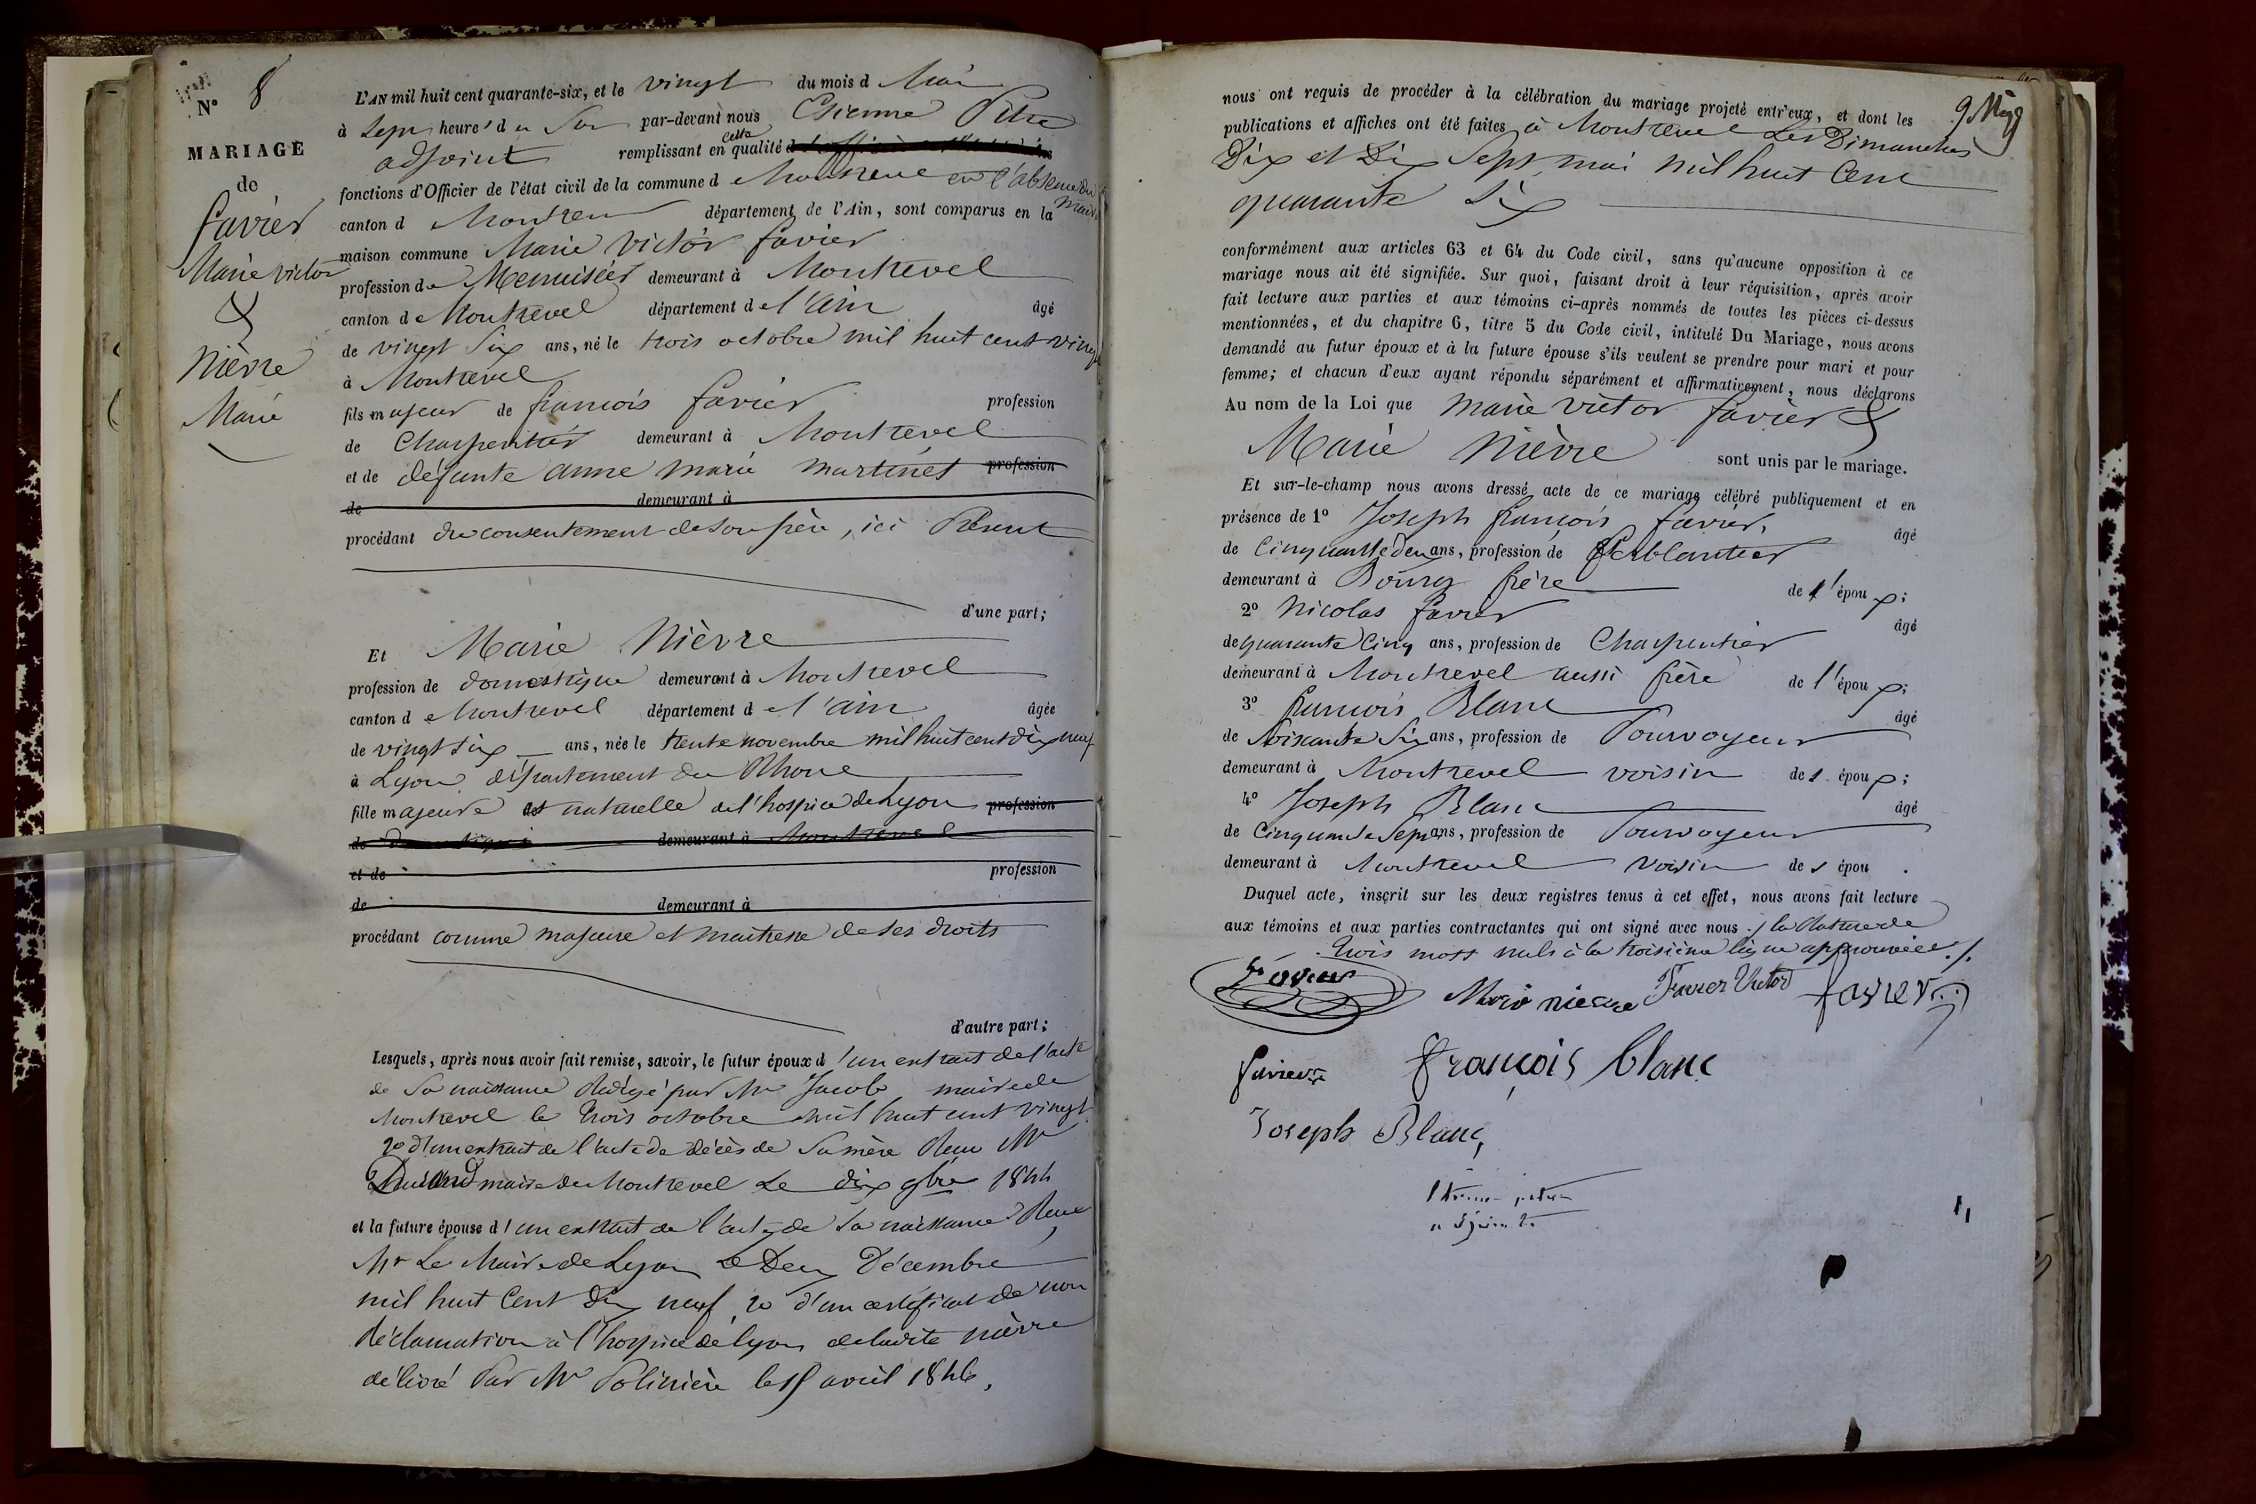 N° 8
MARIAGE
de
favier
Marie victor
&
Nièvre
Marie
L'AN mil huit cent quarante-six, et le vingt du mois d Mai
à Sept heures du Soir par-devant nous Etienne Pitre
adjoint remplissant en cette qualité
fonctions d'Officier de l'état civil de la commune d e Montrevel en l'absence du maire
canton d e Montrevel département de l'Ain, sont comparus en la
maison commune Marie victor favier
profession de Menuisier demeurant à Montrevel
canton d e Montrevel département d e l'ain âgé
de vingt Six ans, né le trois octobre mil huit cent vingt
à Montrevel
fils majeur de francois favier profession
de Charpentier demeurant à Montrevel
et de défunte anne marie martinet profession
de demeurant à
procédant du consentement de son père, ici Présent
d'une part;
Et Marie Nièvre
profession de domestique demeurant à Montrevel
canton d e Montrevel département d e l'ain âgée
de vingt six ans, née le trente novembre mil huit cent dix neuf
à Lyon département du Rhone
fille majeure et naturelle de l'hospice de Lyon profession
de demeurant à Montrevel
et de profession
de demeurant à
procédant comme majeure et maitresse de ses droits
d'autre part;
Lesquels, après nous avoir fait remise, savoir, le futur époux d'un extrait de l'acte
de Sa naissance Rédigé par Mr Jacob maire de
Montrevel le trois octobre mil huit cent vingt
2° d'un extrait de l'acte de décès de Sa mère Reçu Mr
maire de Montrevel Le dix 9bre 1844
et la future épouse d'un extrait de l'acte de Sa naissance Reçu
Mr Le Maire de Lyon Le Deux Décembre
mil huit Cent Dix neuf 2° d'un certificat de non
réclamation à l'hospice de lyon de ladite nièvre
délivré Par Mr Polinière le 15 avril 1846.
nous ont requis de procéder à la célébration du mariage projeté entr'eux, et dont les
publications et affiches ont été faites à Montrevel Les Dimanches
Dix et Dix Sept mai mil huit Cent
quarante Six
conformément aux articles 63 et 64 du Code civil, sans qu'aucune opposition à ce
mariage nous ait été signifiée. Sur quoi, faisant droit à leur réquisition, après avoir
fait lecture aux parties et aux témoins ci-après nommés de toutes les pièces ci-dessus
mentionnées, et du chapitre 6, titre 5 du Code civil, intitulé Du Mariage, nous avons
demandé au futur époux et à la future épouse s'ils veulent se prendre pour mari et pour
femme; et chacun d'eux ayant répondu séparément et affirmativement, nous déclarons
Au nom de la Loi que marie victor favier &
Marie Nièvre sont unis par le mariage.
Et sur-le-champ nous avons dressé acte de ce mariage célébré publiquement et en
présence de 1° Joseph françois favier, âgé
de Cinquante Deux ans, profession de ferblantier
demeurant à Bourg frère de l'époux;
2° Nicolas favier âgé
de quarante Cinq ans, profession de Charpentier
demeurant à Montrevel aussi frère de l'époux;
3° francois Blanc âgé
de Soixante Six ans, profession de Pourvoyeur
demeurant à Montrevel voisin de l époux;
4° Joseph Blanc âgé
de Cinquante Sept ans, profession de Pourvoyeur
demeurant à Montrevel voisin de l épou.
Duquel acte, inscrit sur les deux registres tenus à cet effet, nous avons fait lecture
aux témoins et aux parties contractantes qui ont signé avec nous
trois mots nuls à la troisième ligne approuvée ./.
Marie nievre Favier Victor favier
favier françois blanc
Joseph Blanc,